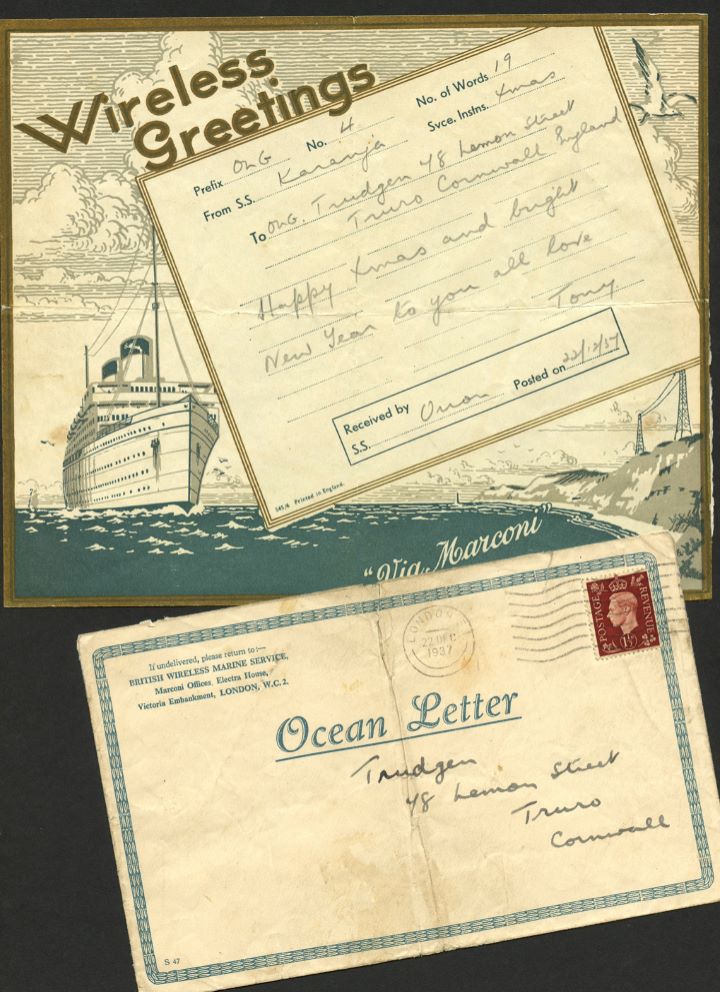 Wireless
Greetings
Prefix OLG No. 4 No. of Words 19
From S.S. Karanja Svce. Instns. Xmas
To OLG. Trudgen 48 Lemon Street
Truro Cornwall England
Happy Xmas and bright
New Year to you all love
Tony
Received by
S.S. Orion Posted on 22/12/37
545/6 Printed in England.
"Via Marconi"
If undelivered, please return to:—
BRITISH WIRELESS MARINE SERVICE,
Marconi Offices, Electra House,
Victoria Embankment, LONDON, W.C.2.
LONDON
22 DEC
1937
POSTAGE REVENUE
1½D
Ocean Letter
Trudgen
48 Lemon Street
Truro
Cornwall
S 47